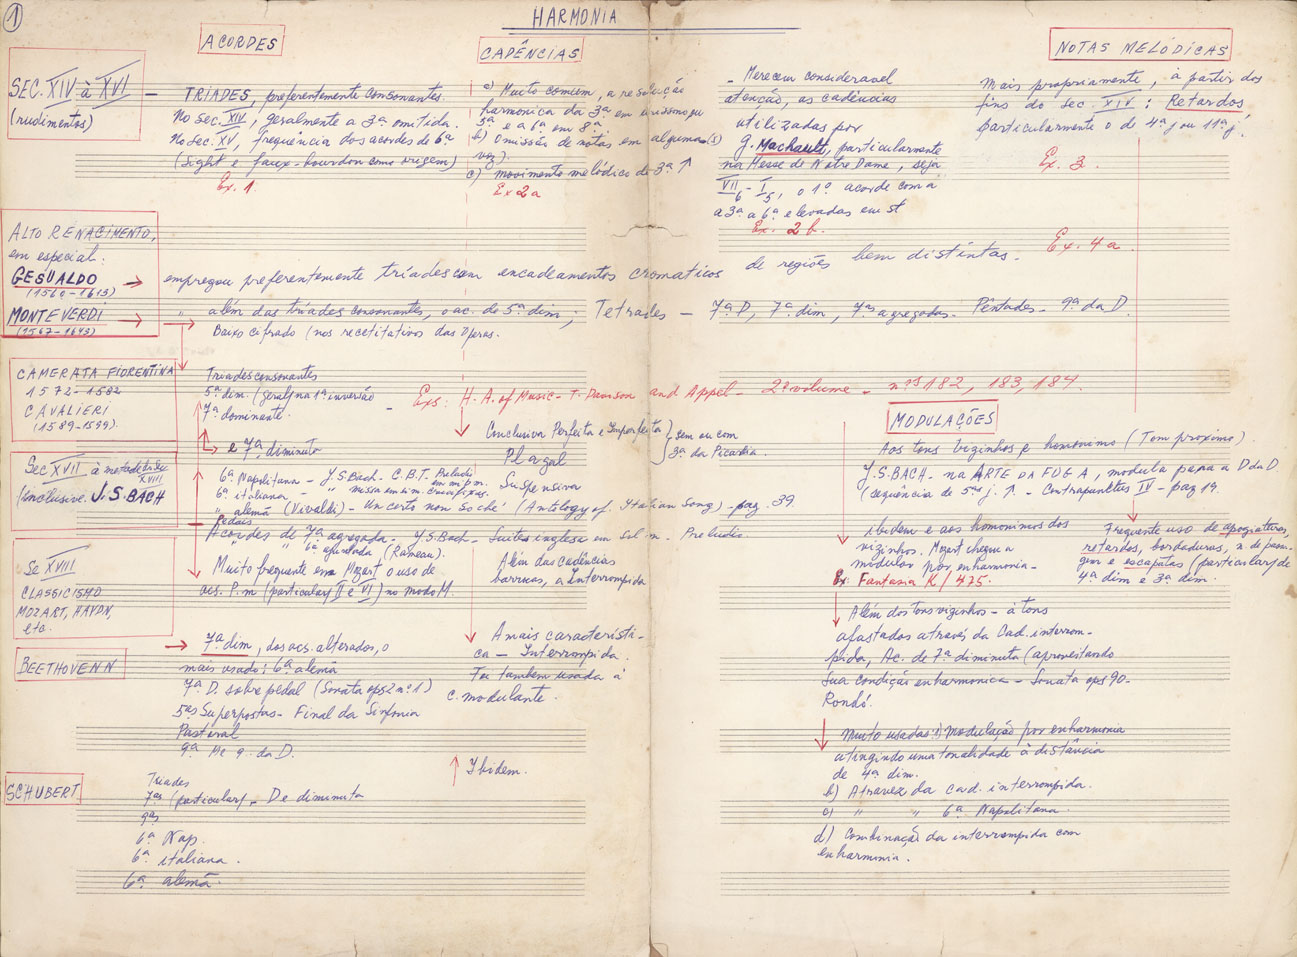 1
HARMONIA
ACORDES
CADÊNCIAS
NOTAS MELÓDICAS
SEC. XIV à XVI
(rudimentos)
– TRÍADES, preferentemente consonantes.
No Sec. XIV, geralmente a 3ª omitida.
No Sec. XV, frequência dos acordes de 6ª
(Sight e faux-bourdon como origem)
Ex. 1.
a) Muito comum, a resolução
harmonica da 3ª em unissono
5ª e a 6ª em 8ª
b) Omissão de notas em alguma(s)
voz).
c) movimento melódico de 3ª ↑
Ex 2a
– Merecem consideravel
atenção, as cadências
utilizadas por
G. Machault, particularmente
na Messe de Notre Dame, seja
VII6 - I5, o 1º acorde com a
a 3ª a 6ª elevadas em st
Ex. 2 b.
Mais propriamente, à partir dos
fins do sec. XIV: Retardos
particularmente o de 4ª j ou 11ª j.
Ex. 3
Ex. 4a
ALTO RENACIMENTO,
em especial:
GESUALDO →
(1560-1613)
empregou preferentemente tríades com encadeamentos cromaticos de regiões bem distintas.
MONTEVERDI →
(1567-1643)
além das tríades consonantes, o ac. de 5ª dim; Tetrades – 7ª D, 7ª dim, 7as agregadas. Pêntades - 9ª da D.
Baixo cifrado (nos recetitativos das Óperas.
CAMERATA FIORENTINA
1572-1582
CAVALIERI
(1589-1599).
Tríades consonantes
5ª dim. (geral) na 1ª inversão
7ª dominante.
– Exs: H. A. of Music - T. Davison and Appel - 2º volume - nºs 182, 183, 184.
e 7ª, diminuta
Conclusiva Perfeita e Imperfeita
Plagal
Suspensiva
} sem ou com
3ª da Picardia
MODULAÇÕES
Aos tons vizinhos e homonimo (Tom proximo)
J.S.BACH - na ARTE DA FUGA, modula para a D da D
(sequência de 5as j. ↑ - Contrapunctus IV - pag 19.
Sec XVII à metade do Sec XVIII
(inclusive J.S. BACH
6ª Napolitana - J.S. Bach - C.B.T. Preludio em mi b m.
6ª italiana - " missa em si m. Crucifixus.
" alemã (Vivaldi) - Un certo non so che' (Antology of Italian Song) - pag. 39.
Pedais
Acordes de 7ª agregada - J.S. Bach - Suite inglesa em sol m. Preludio
" " 6ª ajuntada (Rameau).
ibidem e aos homonimos dos
vizinhos. Mozart chega a
modular por enharmonia -
Ex: Fantasia K/475.
Frequente uso de apogiaturas,
retardos, bordaduras, n. de passa-
gem e escapatas (particular) de
4ª dim e 3ª dim.
Se XVIII
CLASSICISMO
MOZART, HAYDN,
etc.
Muito frequente em Mozart o uso de
acs. P.m (particular) II e VI) no modo M.
Além das cadências
barrocas, a Interrompida
BEETHOVENN
→ 7ª dim, dos acs. alterados, o
mais usado: 6ª alemã
7ª D. sobre pedal (Sonata ops 2 nº 1)
5as Superpostas - Final da Sinfonia
Pastoral
9ª M e 9. da D.
A mais característi-
ca - Interrompida.
Foi tambem usada à
c. modulante.
Além dos tons vizinhos - à tons
afastados através da Cad. interrom-
pida, Ac. de 7ª diminuta (aproveitando
sua condição enharmonica - Sonata ops 90-
Rondó.
SCHUBERT
Triades
7as (particular) - De diminuta
9as
6ª Nap.
6ª italiana.
6ª alemã.
↑ Ibidem.
Muito usadas: a) Modulação por enharmonia
atingindo uma tonalidade à distância
de 4ª dim.
b) Atravez da cad. interrompida.
c) " " 6ª Napolitana.
d) Combinação da interrompida com
enharmonia.